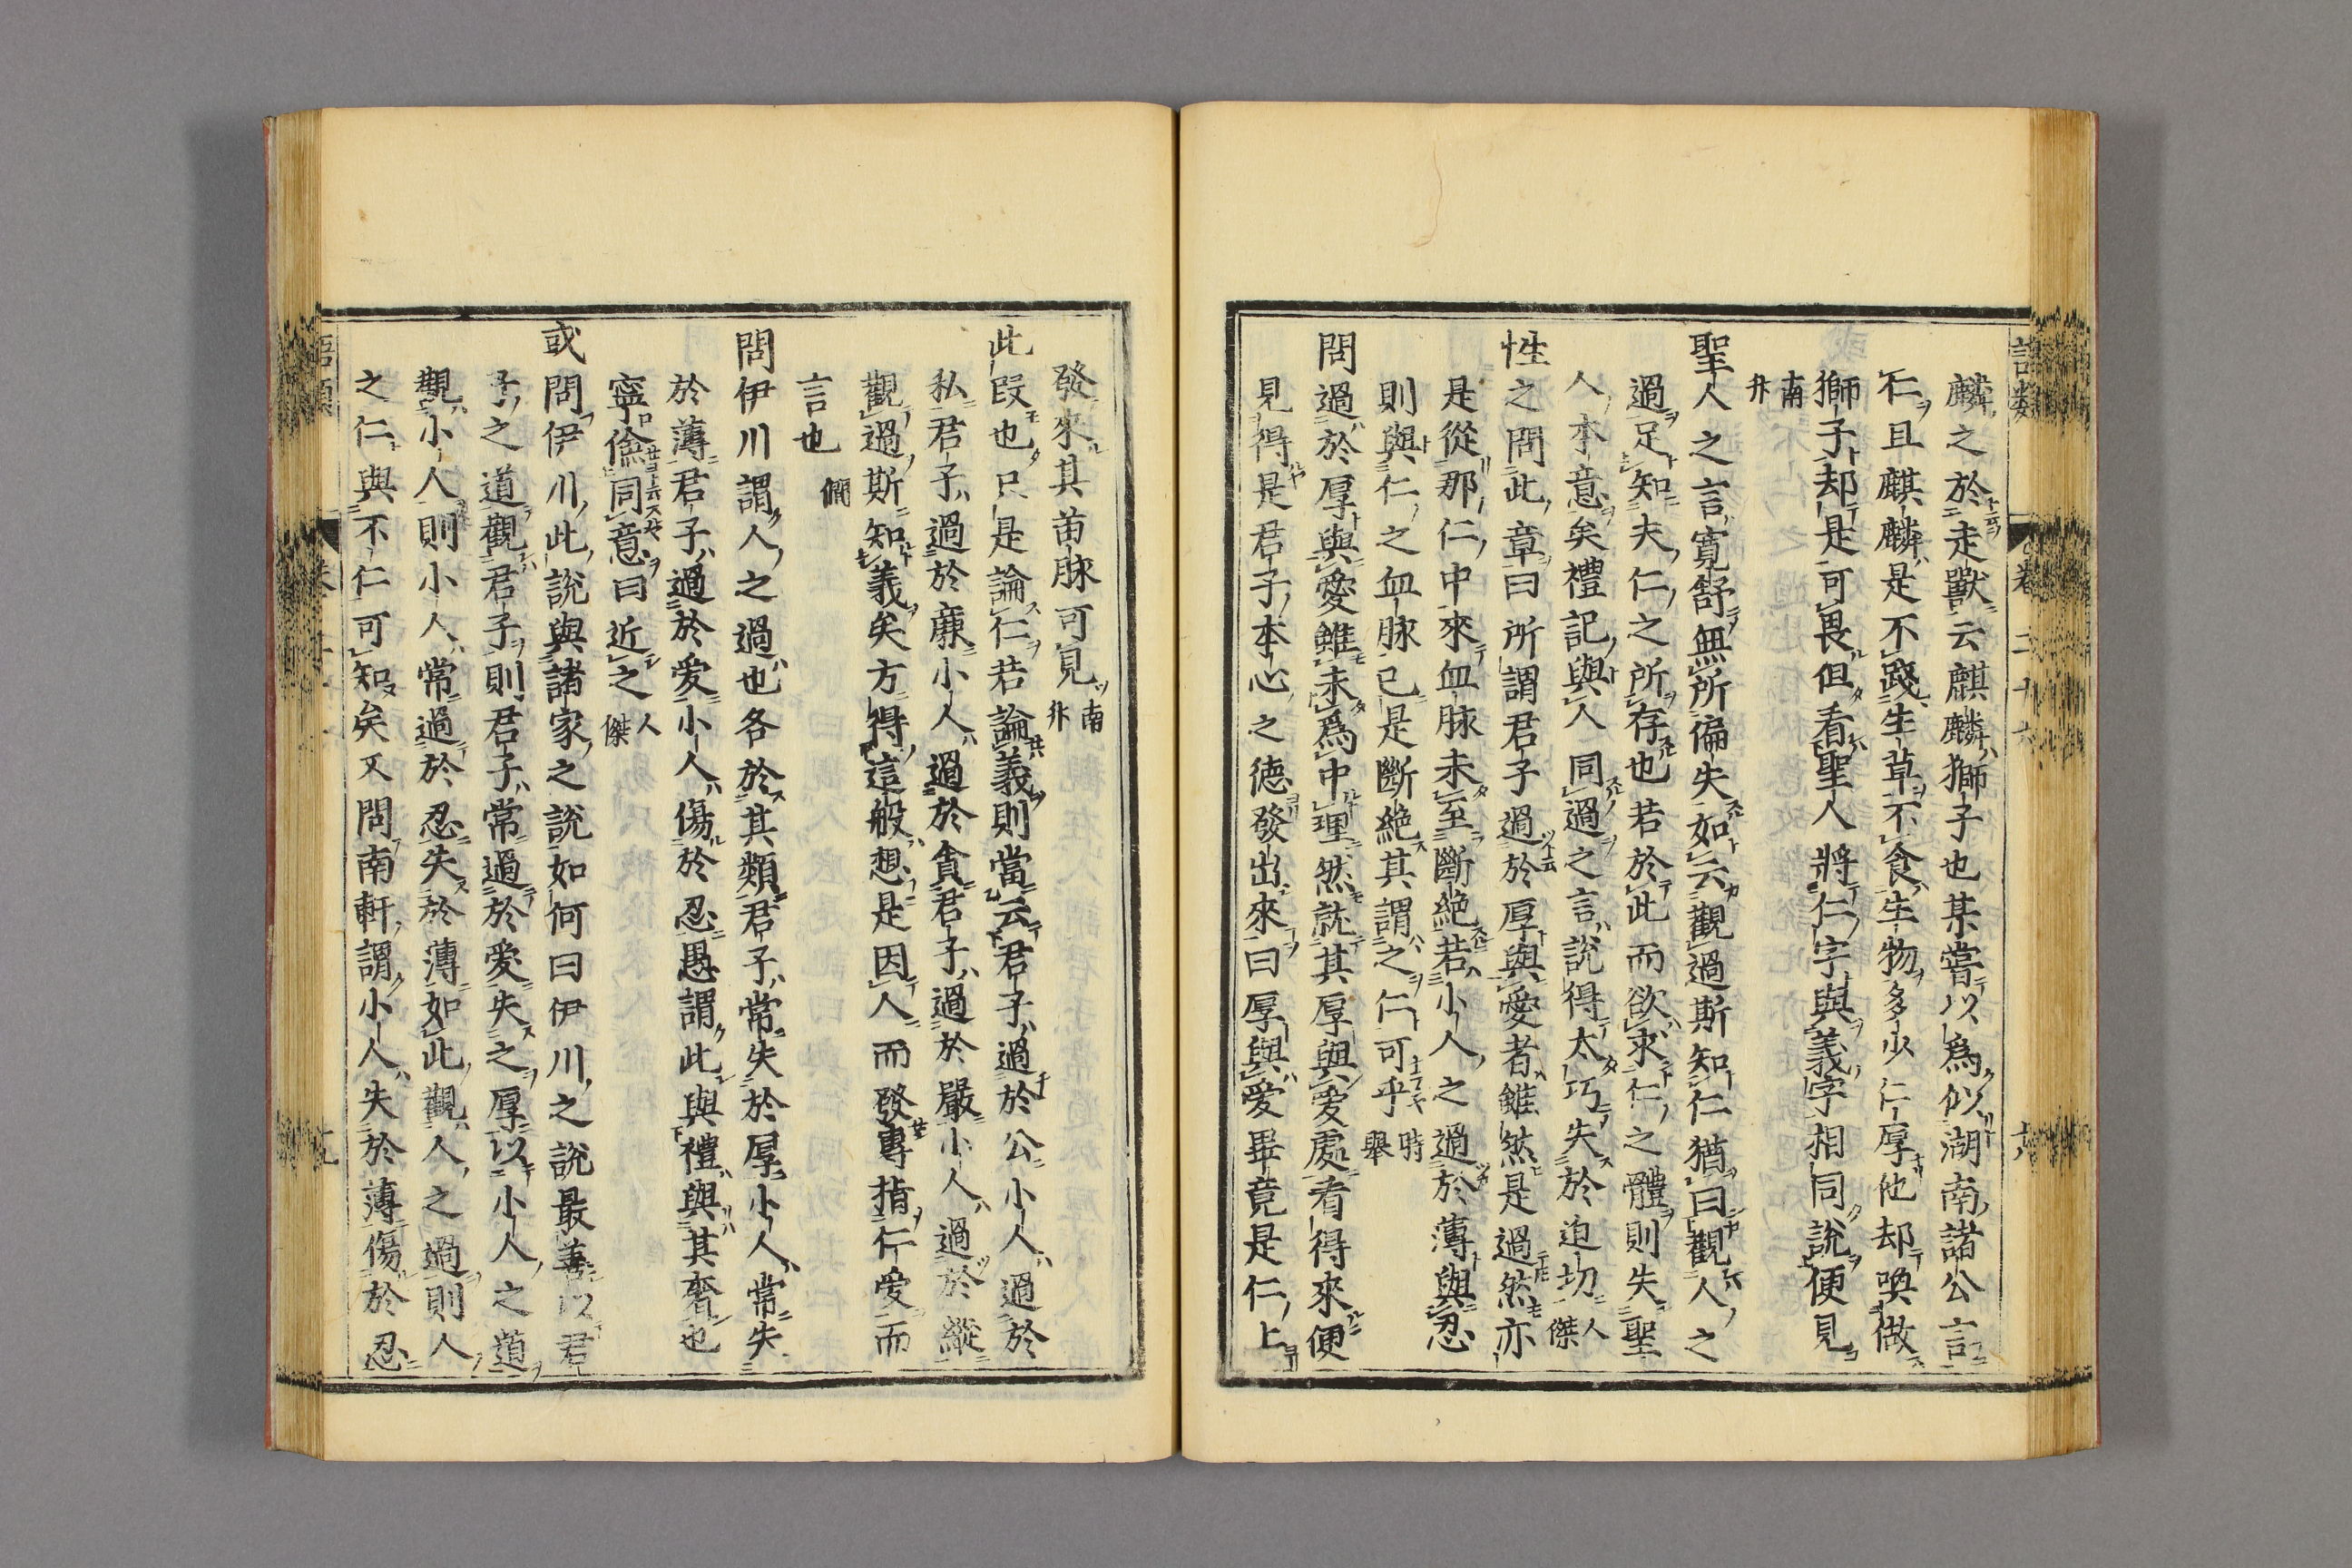 麟之於走獸云麒麟獅子也某嘗以爲似湖南諸公言
仁且麒麟是不踐生草不食生物多少仁厚他却喚做
獅子却是可畏但看聖人將仁字與義字相同說便見
南升
聖人之言寬舒無所偏失如云觀過斯知仁猶曰觀人之
過足知夫仁之所存也若於此而欲求仁之體則失聖
人本意矣禮記與人同過之言說得太巧失於迫切人傑
性之問此章曰所謂君子過於厚與愛者雖然是過然亦
是從那仁中來血脉未至斷絶若小人之過於薄與忍
則與仁之血脉已是斷絶其謂之仁可乎時舉
問過於厚與愛雖未爲中理然就其厚與愛處看得來便
見得是君子本心之德發出來曰厚與愛畢竟是仁上
發來其苗脉可見南升
此段也只是論仁若論義則當云君子過於公小人過於
私君子過於廉小人過於貪君子過於嚴小人過於縱
觀過斯知義矣方得這般想是因人而發專指仁愛而
言也僩
問伊川謂人之過也各於其類君子常失於厚小人常失
於薄君子過於愛小人傷於忍愚謂此與禮與其奢也
寧儉同意曰近之人傑
或問伊川此說與諸家之說如何曰伊川之說最善以君
子之道觀君子則君子常過於愛失之厚以小人之道
觀小人則小人常過於忍失於薄如此觀人之過則人
之仁與不仁可知矣又問南軒謂小人失於薄傷於忍